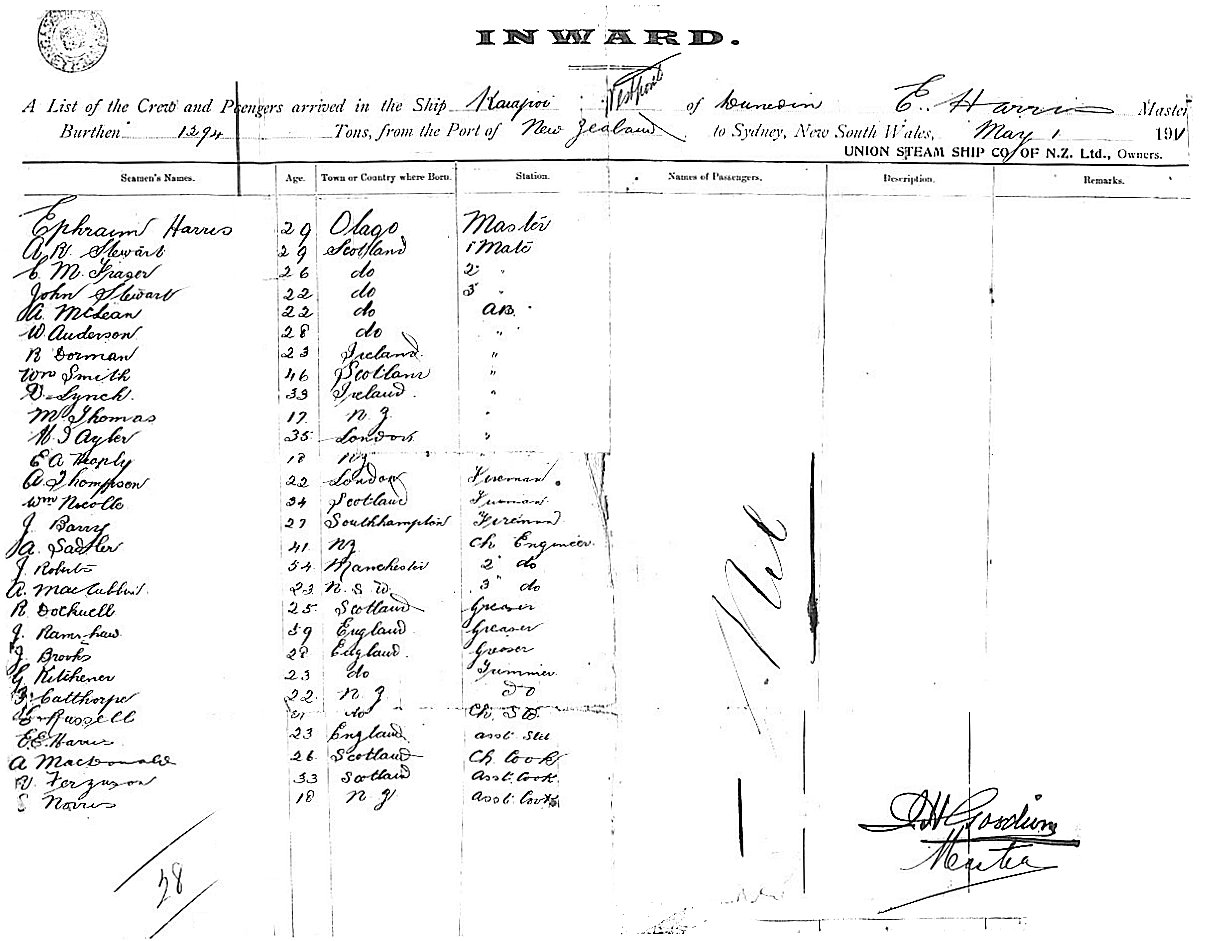 INWARD.
Westport
A List of the Crew and Psengers arrived in the Ship Kaiapoi of Dunedin E. Harris Master
Burthen 1294 Tons, from the Port of New Zealand to Sydney, New South Wales, May 1 191
UNION STEAM SHIP CO OF N.Z. Ltd., Owners.
Seamen's Names. Age. Town or Country where Born. Station. Names of Passengers. Description. Remarks.
Ephraim Harris 29 Otago Master
A. Stewart 29 Scotland 1 Mate
M. Frazer 26 do 2 "
John Stewart 22 do 3 "
A. McLean 22 do AB.
W Anderson 28 do "
R Dorman 23 Ireland "
Wm Smith 46 Scotland "
D. Lynch. 33 Ireland "
M Thomas 17 N.Z "
H J Ayler 35 London "
E A 18 NZ "
A Thompson 22 London Fireman
Wm Nicolle 34 Scotland Fireman
J. Barry 27 Southhampton Fireman
A. Sadler 41 NZ Ch Engineer
J Roberts 54 Manchester 2 do
A. 23 N.S.W. 3 do
R Dockwell 25 Scotland Greaser
J. Ramshaw 39 England Greaser
J Brooks 28 England Greaser
G Kitchener 23 do Trimmer
Calthorpe 22 N.Z do
Russell do Ch. St
E.E. Harris 23 England asst Std
A MacDonald 26 Scotland Ch Cook
Ferguson 33 Scotland Asst. Cook
S Norris 18 N.Z Asst. Cook
Nil
28
Master